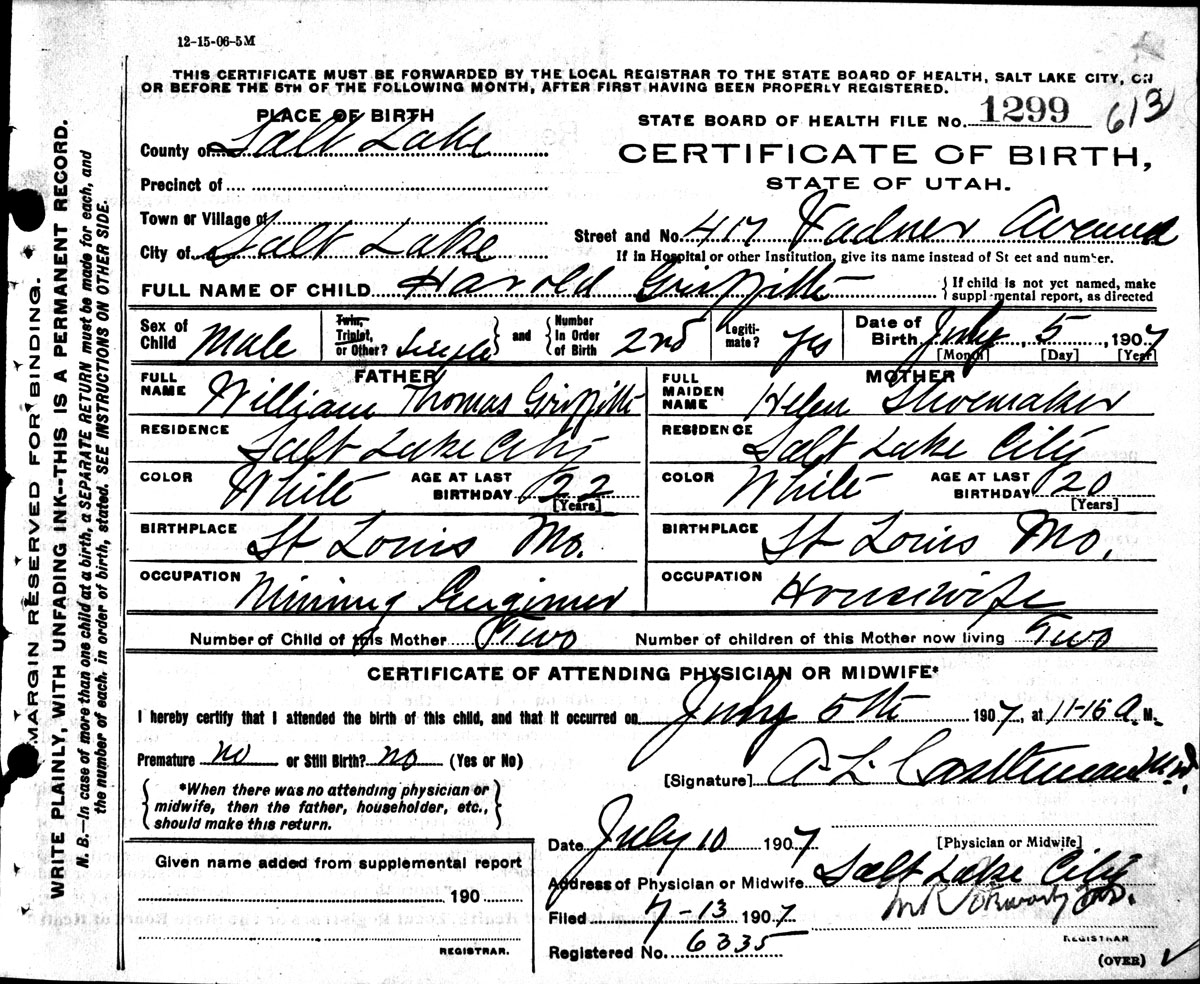 12-15-06-5M
THIS CERTIFICATE MUST BE FORWARDED BY THE LOCAL REGISTRAR TO THE STATE BOARD OF HEALTH, SALT LAKE CITY, ON
OR BEFORE THE 5TH OF THE FOLLOWING MONTH, AFTER FIRST HAVING BEEN PROPERLY REGISTERED.
PLACE OF BIRTH
STATE BOARD OF HEALTH FILE No. 1299 613
County of Salt Lake
CERTIFICATE OF BIRTH,
STATE OF UTAH.
Precinct of
Town or Village of
City of Salt Lake
Street and No. 417 Fadner Avenue
If in Hospital or other Institution, give its name instead of St eet and number.
FULL NAME OF CHILD Harold Griffith
If child is not yet named, make
suppl mental report, as directed
Sex of Child Male
Twin, Triplet, or Other? Single and Number in Order of Birth 2nd
Legitimate? Yes
Date of Birth July 5, 1907
[Month] [Day] [Year]
FATHER
FULL NAME William Thomas Griffith
RESIDENCE Salt Lake City
COLOR White AGE AT LAST BIRTHDAY 22
[Years]
BIRTHPLACE St Louis Mo.
OCCUPATION Mining Engineer
MOTHER
FULL MAIDEN NAME Helen Shoemaker
RESIDENCE Salt Lake City
COLOR White AGE AT LAST BIRTHDAY 20
[Years]
BIRTHPLACE St Louis Mo.
OCCUPATION Housewife
Number of Child of this Mother Two Number of children of this Mother now living Two
CERTIFICATE OF ATTENDING PHYSICIAN OR MIDWIFE*
I hereby certify that I attended the birth of this child, and that it occurred on July 5th 1907, at 11-15 A. M.
Premature no or Still Birth? no (Yes or No)
[Signature] A L
*When there was no attending physician or
midwife, then the father, householder, etc.,
should make this return.
Date July 10 1907
[Physician or Midwife]
Address of Physician or Midwife Salt Lake City
Filed 7-13 1907
Registered No. 6335
REGISTRAR
(OVER)
Given name added from supplemental report
190
REGISTRAR.
MARGIN RESERVED FOR BINDING.
WRITE PLAINLY, WITH UNFADING INK--THIS IS A PERMANENT RECORD.
N. B.—In case of more than one child at a birth, a SEPARATE RETURN must be made for each, and
the number of each, in order of birth, stated. SEE INSTRUCTIONS ON OTHER SIDE.